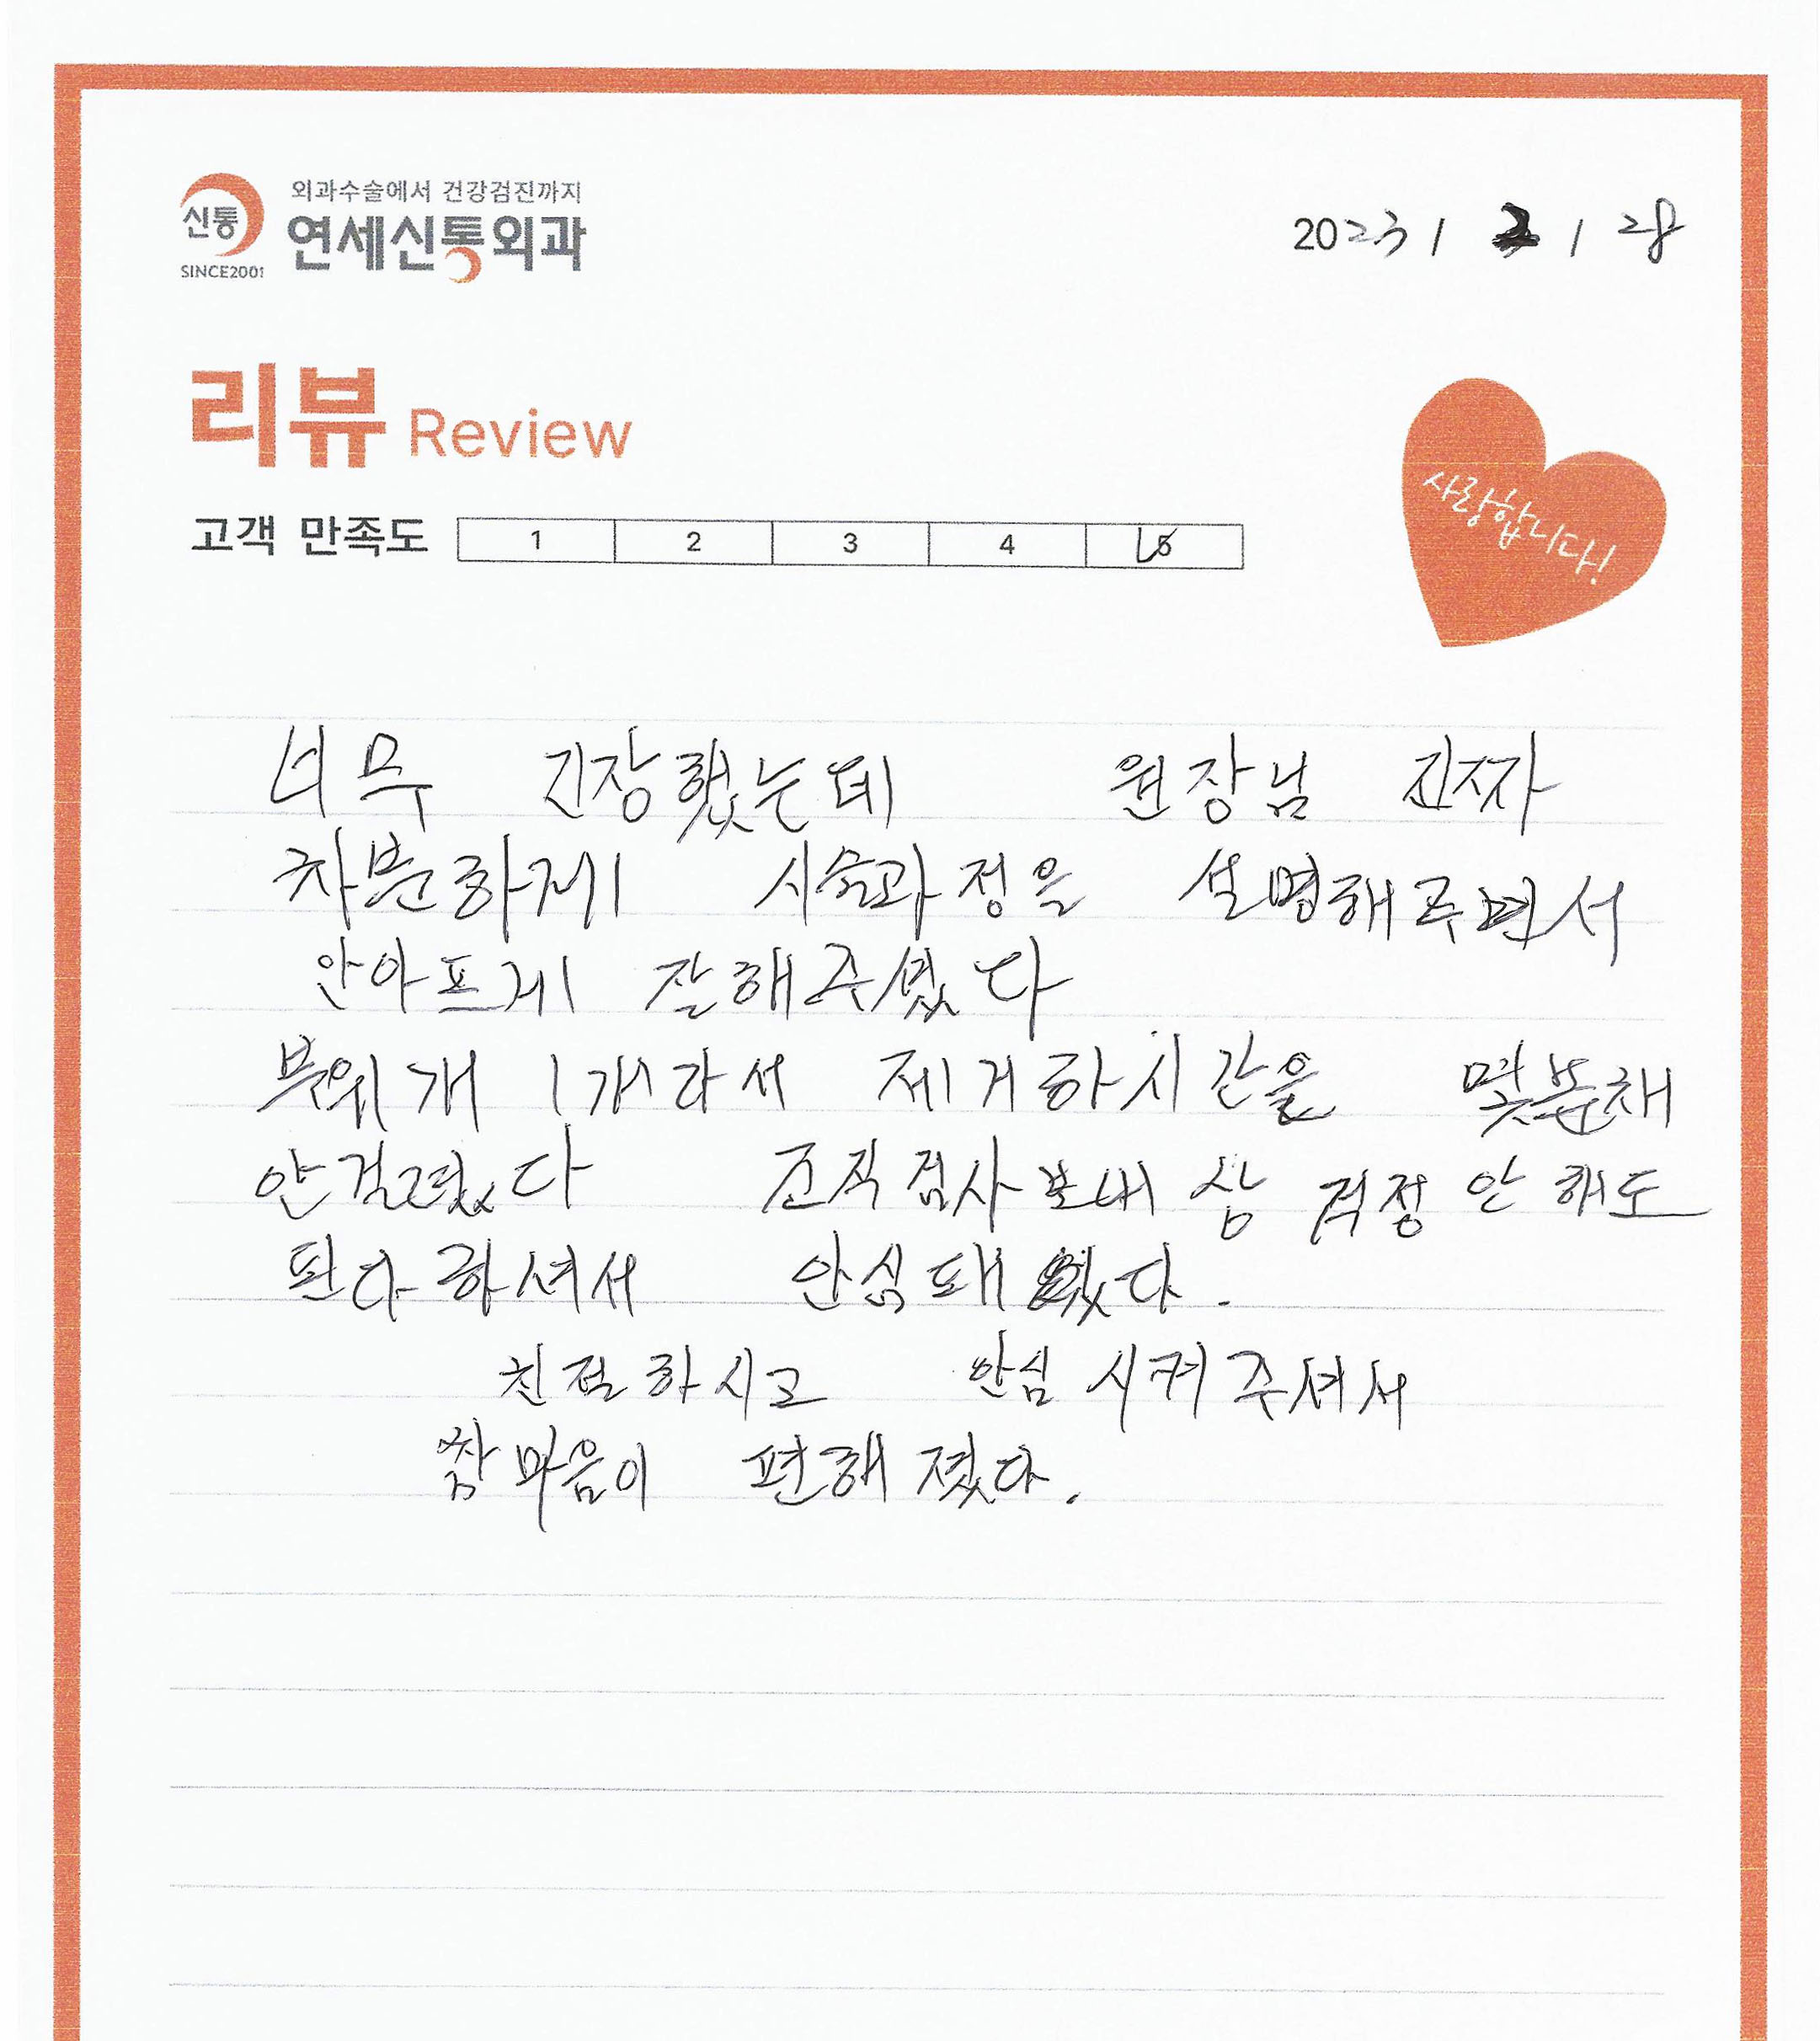 신통
SINCE2001
외과수술에서 건강검진까지
연세신통외과
2023 / 2 / 28
리뷰 Review
고객 만족도 1 2 3 4 5
사랑합니다!
너무 긴장했는데 원장님 진짜
차분하게 시술과정을 설명해주면서
안아프게 잘해주셨다
부위개 1개라서 제거하시간을 몇분채
안걸렸다 조직검사보내상 걱정 안해도
된다하셔서 안심돼었다.
친절하시고 안심시켜주셔서
참마음이 편해졌다.